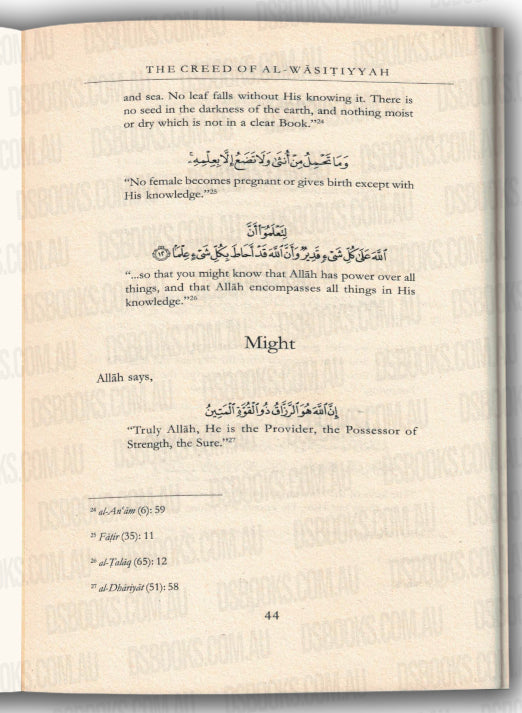 THE CREED OF AL-WĀSIṬIYYAH
and sea. No leaf falls without His knowing it. There is
no seed in the darkness of the earth, and nothing moist
or dry which is not in a clear Book.”²⁴
وَمَا تَحْمِلُ مِنْ أُنثَىٰ وَلَا تَضَعُ إِلَّا بِعِلْمِهِۦ ۚ
“No female becomes pregnant or gives birth except with
His knowledge.”²⁵
لِتَعْلَمُوٓا۟ أَنَّ
ٱللَّهَ عَلَىٰ كُلِّ شَىْءٍ قَدِيرٌ وَأَنَّ ٱللَّهَ قَدْ أَحَاطَ بِكُلِّ شَىْءٍ عِلْمًۢا ﴿١٢﴾
“...so that you might know that Allāh has power over all
things, and that Allāh encompasses all things in His
knowledge.”²⁶
Might
Allāh says,
إِنَّ ٱللَّهَ هُوَ ٱلرَّزَّاقُ ذُو ٱلْقُوَّةِ ٱلْمَتِينُ
“Truly Allāh, He is the Provider, the Possessor of
Strength, the Sure.”²⁷
²⁴ al-An‘ām (6): 59
²⁵ Fāṭir (35): 11
²⁶ al-Ṭalāq (65): 12
²⁷ al-Dhāriyāt (51): 58
44
DSBOOKS.COM.AU